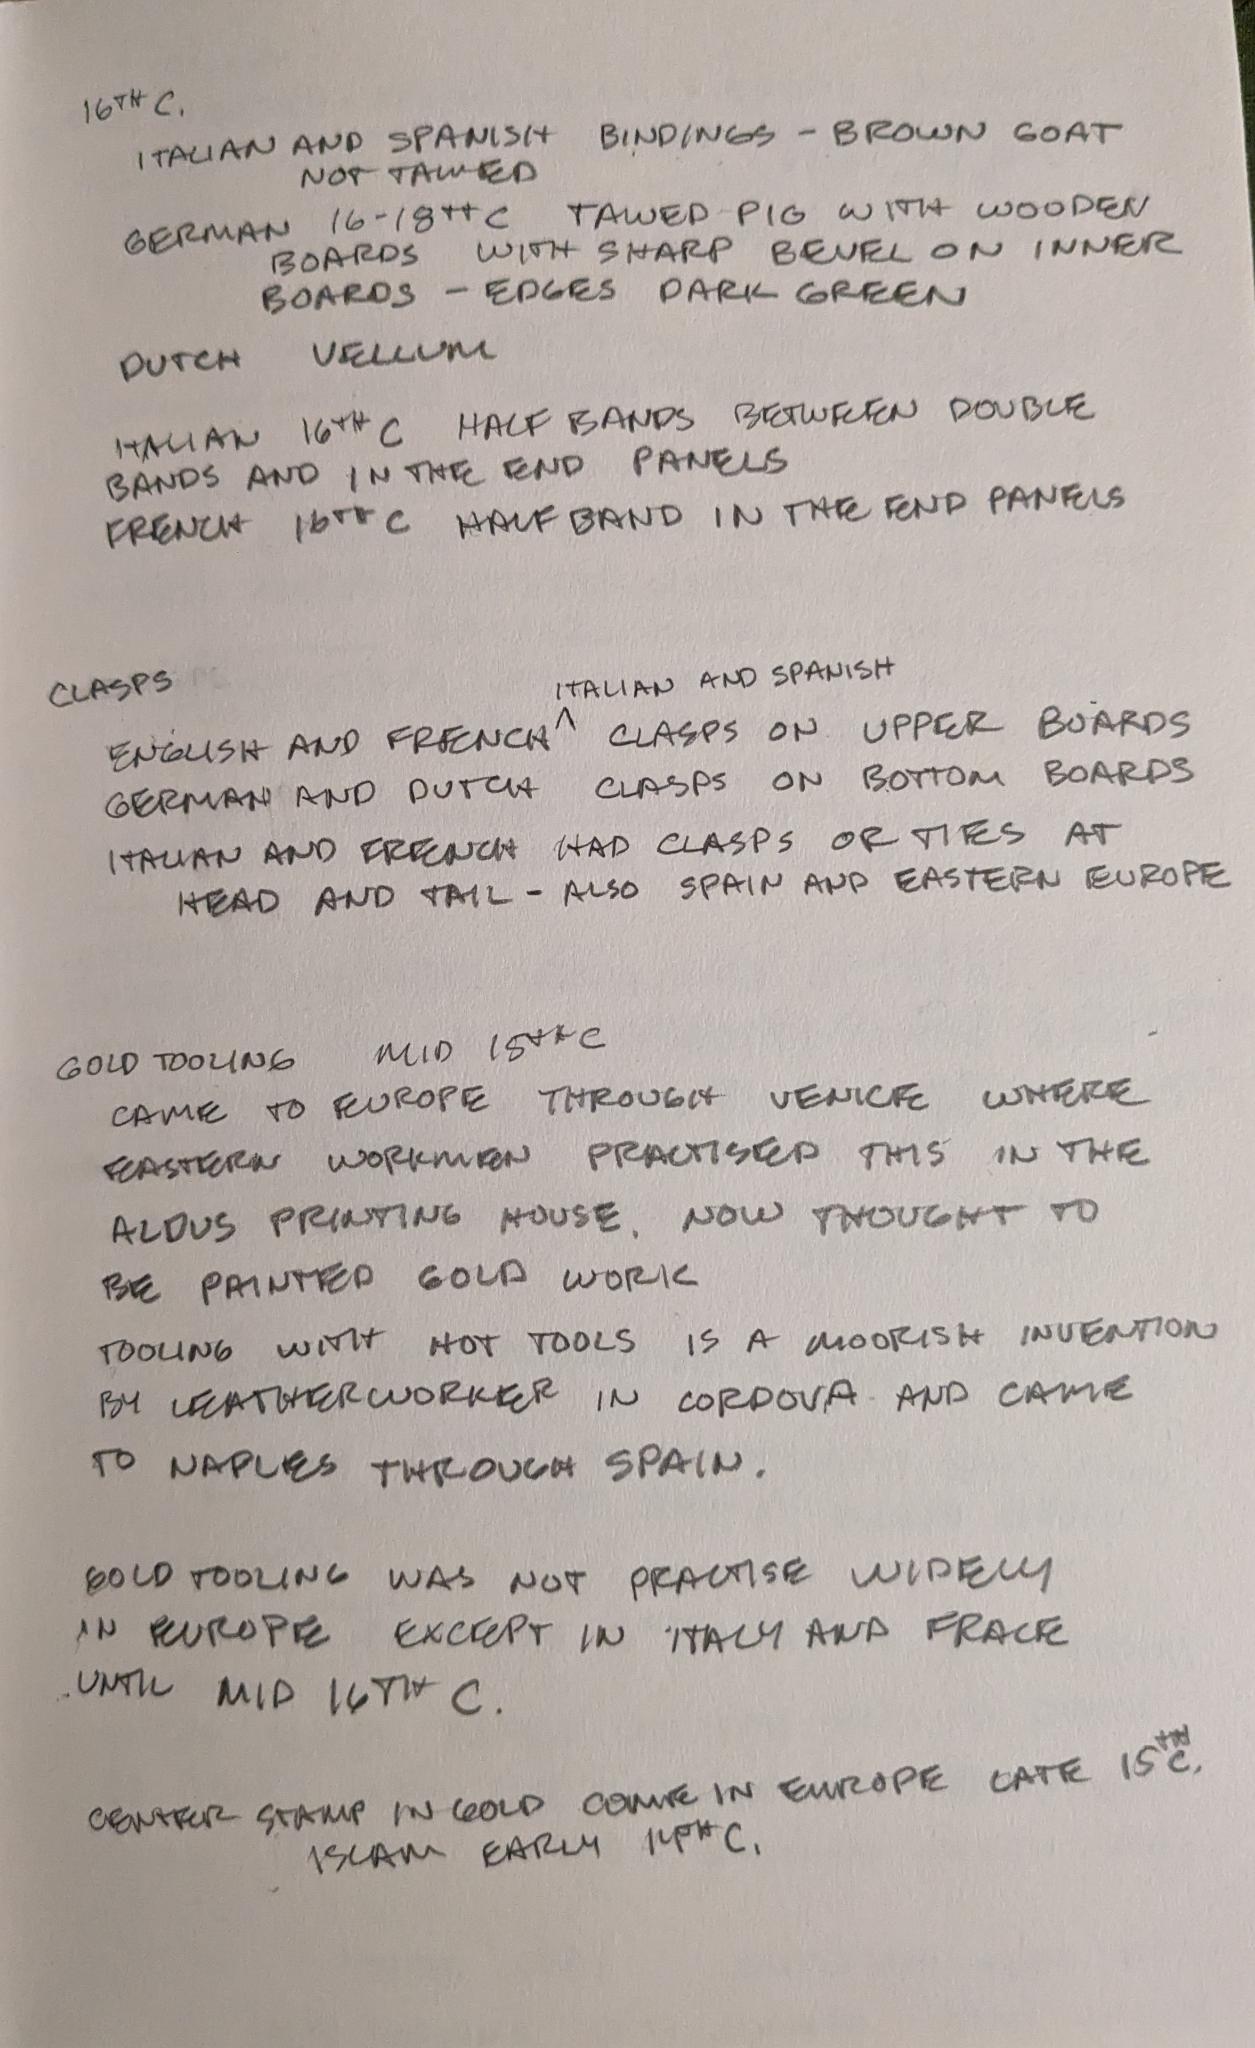 16TH C.
ITALIAN AND SPANISH BINDINGS - BROWN GOAT
NOT TAWED
GERMAN 16-18TH C TAWED PIG WITH WOODEN
BOARDS WITH SHARP BEVEL ON INNER
BOARDS - EDGES DARK GREEN
DUTCH VELLUM
ITALIAN 16TH C HALF BANDS BETWEEN DOUBLE
BANDS AND IN THE END PANELS
FRENCH 16TH C HALF BAND IN THE END PANELS
CLASPS
ITALIAN AND SPANISH
ENGLISH AND FRENCH ^ CLASPS ON UPPER BOARDS
GERMAN AND DUTCH CLASPS ON BOTTOM BOARDS
ITALIAN AND FRENCH HAD CLASPS OR TIES AT
HEAD AND TAIL - ALSO SPAIN AND EASTERN EUROPE
GOLD TOOLING MID 15TH C
CAME TO EUROPE THROUGH VENICE WHERE
EASTERN WORKMEN PRACTISED THIS IN THE
ALDUS PRINTING HOUSE. NOW THOUGHT TO
BE PAINTED GOLD WORK
TOOLING WITH HOT TOOLS IS A MOORISH INVENTION
BY LEATHERWORKER IN CORDOVA AND CAME
TO NAPLES THROUGH SPAIN.
GOLD TOOLING WAS NOT PRACTISE WIDELY
IN EUROPE EXCEPT IN ITALY AND FRACE
UNTIL MID 16TH C.
CENTER STAMP IN GOLD COME IN EUROPE LATE 15TH C.
ISLAM EARLY 14TH C.